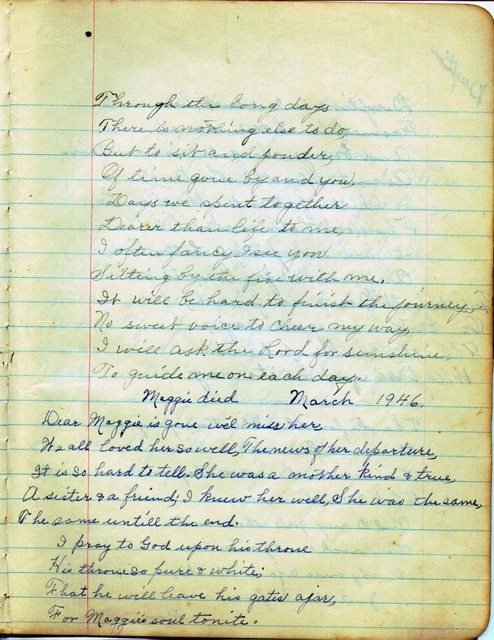 Through the long days
There is nothing else to do,
But to sit and ponder,
Of time gone by and you,
Days we spent together
Dearer than life to me
I often fancy I see you
Sitting by the fire with me.
It will be hard to finish the journey,
No sweet voice to cheer my way,
I will ask the Lord for sunshine
To guide me on each day.
Maggie died March 1946.
Dear Maggie is gone we'l miss her
We all loved her so well, The news of her departure,
It is so hard to tell. She was a mother kind & true
A sister & a friend; I knew her well, She was the same,
The same untill the end.
I pray to God upon his throne
His throne so pure & white;
That he will leave his gates ajar,
For Maggie's soul tonite.